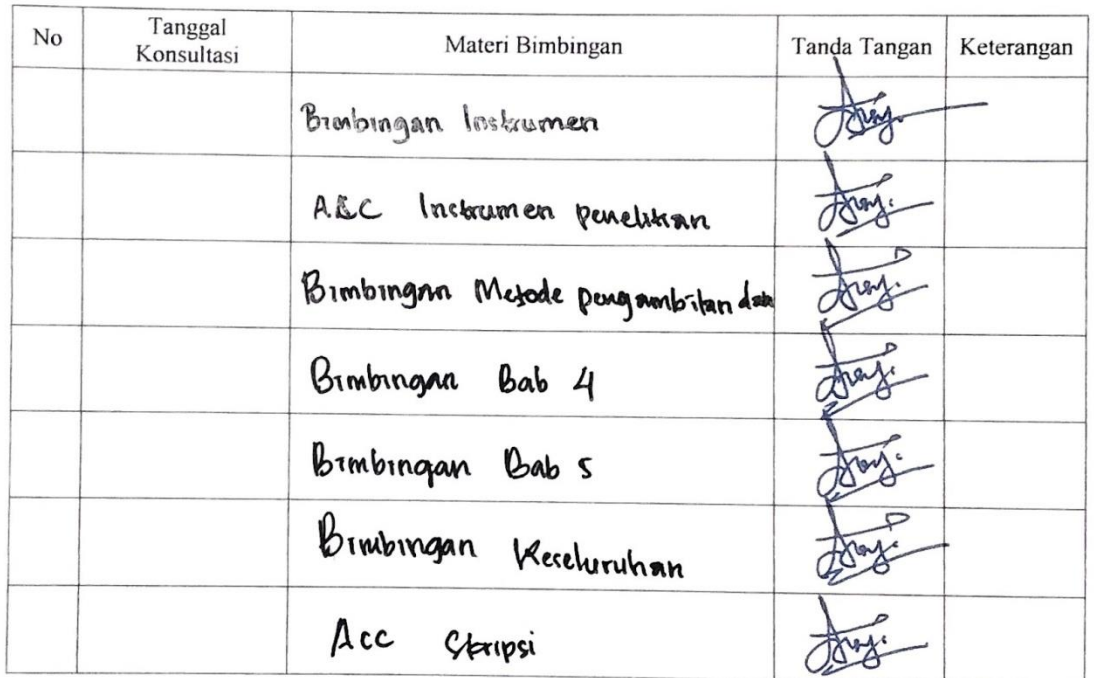 No Tanggal Konsultasi Materi Bimbingan Tanda Tangan Keterangan
Bimbingan Instrumen
ACC Instrumen penelitian
Bimbingan Metode pengambilan data
Bimbingan Bab 4
Bimbingan Bab 5
Bimbingan Keseluruhan
Acc Skripsi